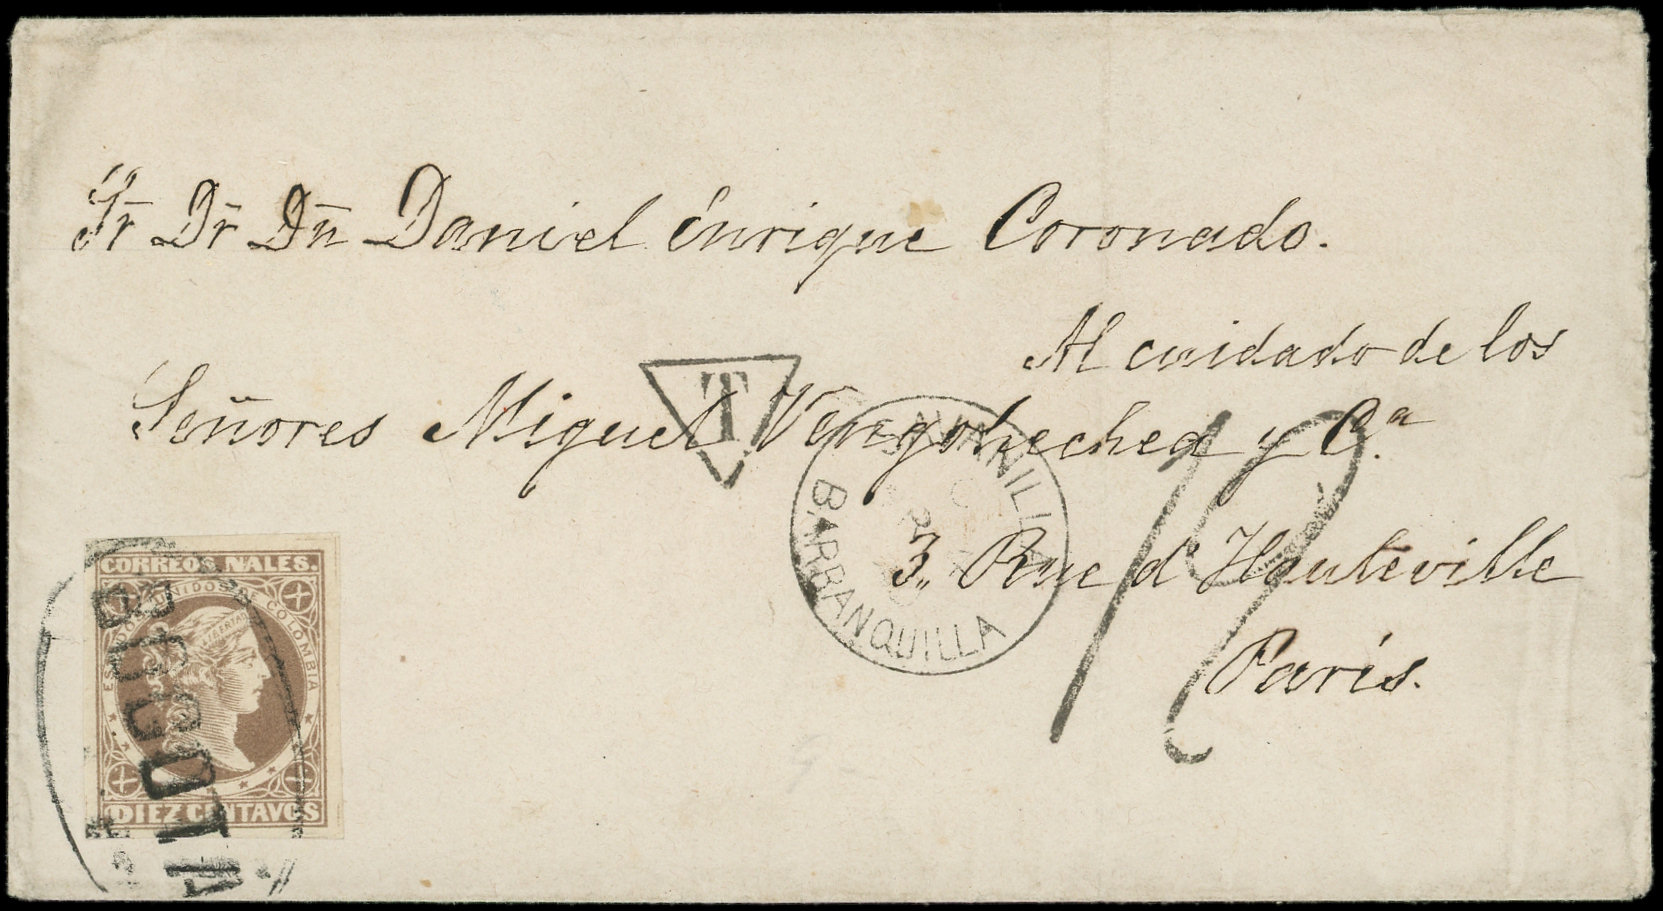 Sr Dr Dn Daniel Enrique Coronado.
Al cuidado de los
Señores Miguel Vengohechea y Ca.
3,, Rue d'Hauteville
Paris.
T
SAVANILLA
BARRANQUILLA
CORREOS NALES.
ESTADOS UNIDOS DE COLOMBIA
LIBERTAD
DIEZ CENTAVOS
BOGOTA